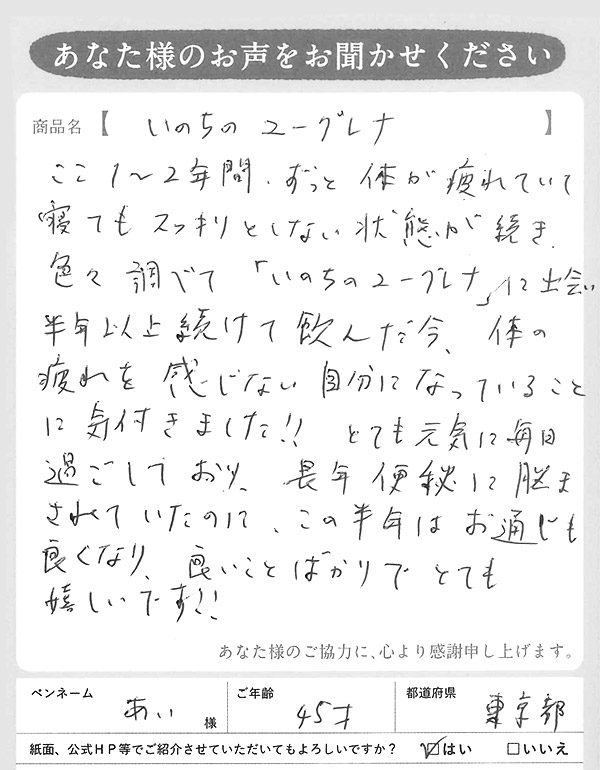 あなた様のお声をお聞かせください
商品名【 いのちのユーグレナ 】
ここ1〜2年間、ずっと体が疲れていて
寝てもスッキリとしない状態が続き、
色々調べて「いのちのユーグレナ」に出会い
半年以上続けて飲んだ今、体の
疲れを感じない自分になっていること
に気付きました!! とても元気に毎日
過ごしており、長年便秘に脳ま
されていたのに、この半年はお通じも
良くなり、良いことばかりでとても
嬉しいです!!
あなた様のご協力に、心より感謝申し上げます。
ペンネーム あい 様 ご年齢 45才 都道府県 東京都
紙面、公式HP等でご紹介させていただいてもよろしいですか? ☑はい □いいえ